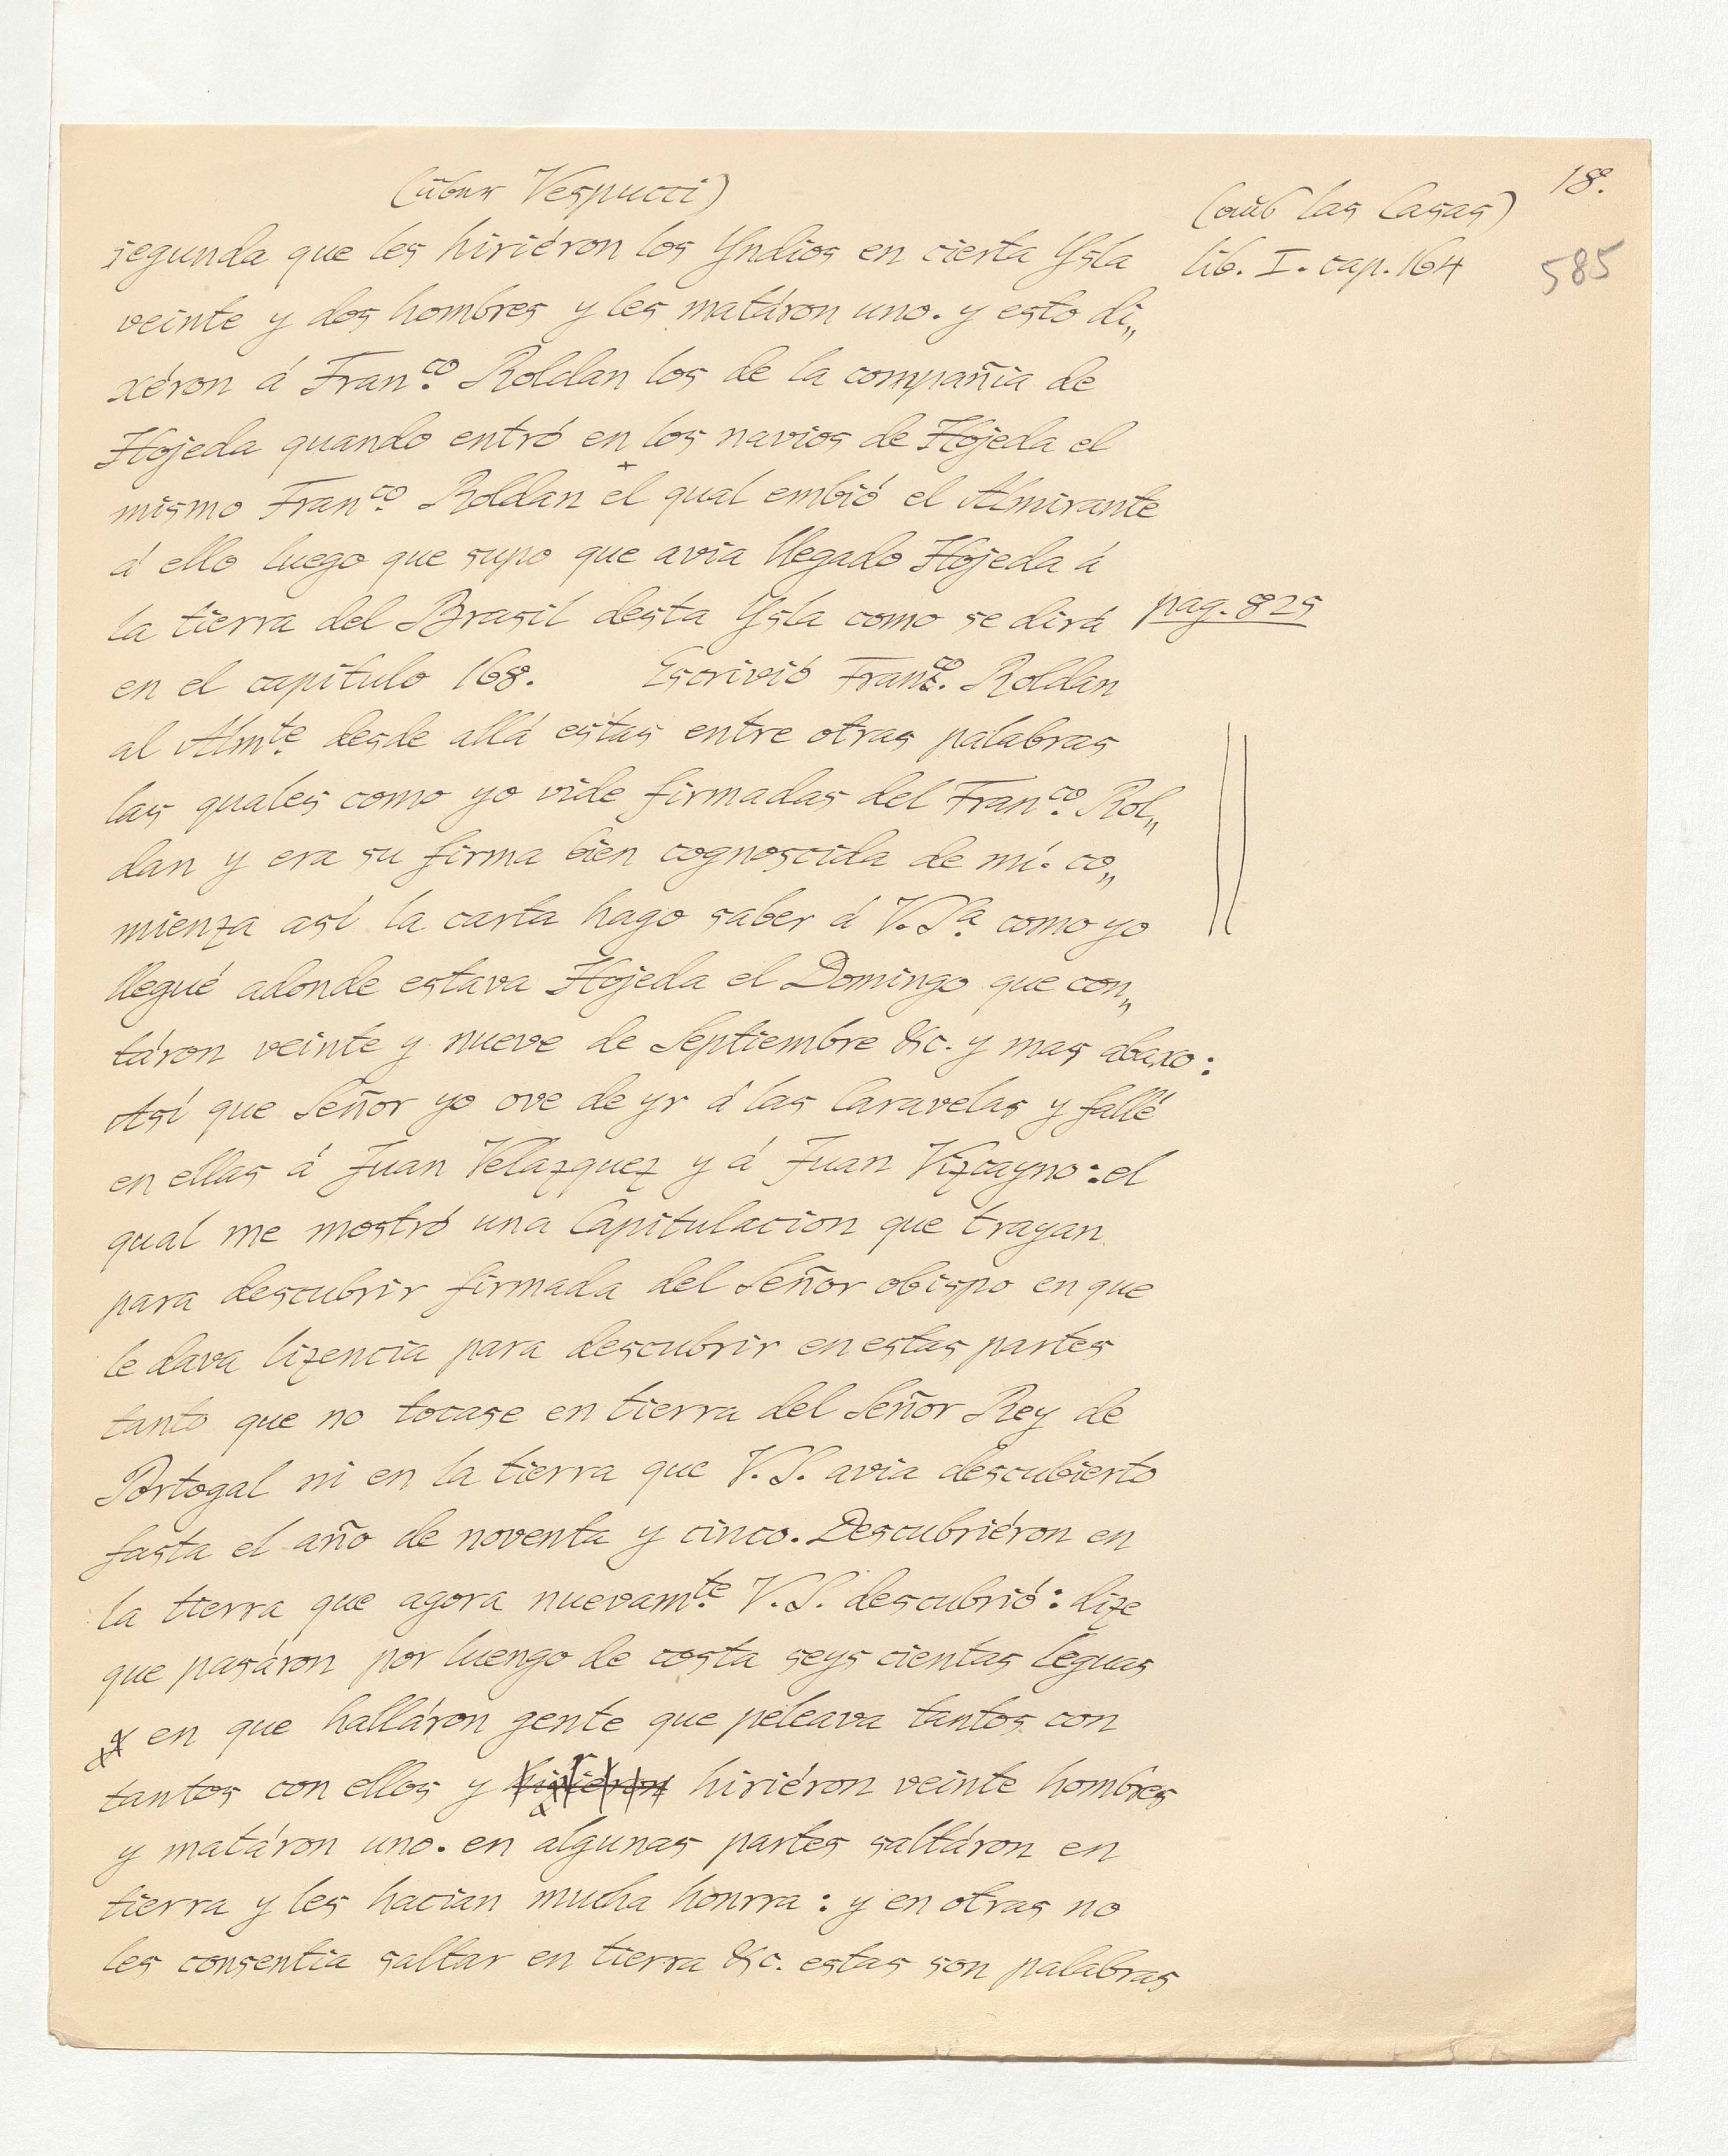 18.
(über Vespucci)
(aus las Casas)
segunda que les hiriéron los Yndios en cierta Ysla
lib. I. cap. 164
585
veinte y dos hombres y les matáron uno. y esto di„
xéron á Fran.co Roldan los de la compañia de
Hojeda quando entró en los navios de Hojeda el
mismo Fran.co Roldan el qual embió el Almirante
á ello luego que supo que avia llegado Hojeda á
la tierra del Brasil desta Ysla como se dirá
pag. 825
en el capitulo 168. Escrivió Fran.co Roldan
al Alm.te desde allá estas entre otras palabras
las quales como yo vide firmadas del Fran.co Rol„
dan y era su firma bien cognoscida de mí. co„
mienza así la carta hago saber á V. S.a como yo
llegué adonde estava Hojeda el Domingo que con„
táron veinte y nueve de Septiembre &c. y mas abaxo:
Así que Señor yo ove de yr á las Caravelas y fallé
en ellas á Juan Velazquez y á Juan Vizcayno: el
qual me mostró una Capitulacion que trayan
para descubrir firmada del Señor obispo en que
le dava lizencia para descubrir en estas partes
tanto que no tocase en tierra del Señor Rey de
Portogal ni en la tierra que V. S. avia descubierto
fasta el año de noventa y cinco. Descubriéron en
la tierra que agora nuevam.te V. S. descubrió: dize
que pasáron por luengo de costa seys cientas leguas
en que halláron gente que peleava tantos con
tantos con ellos y hiriéron veinte hombres
y matáron uno. en algunas partes saltáron en
tierra y les hacian mucha honrra: y en otras no
les consentia saltar en tierra &c. estas son palabras